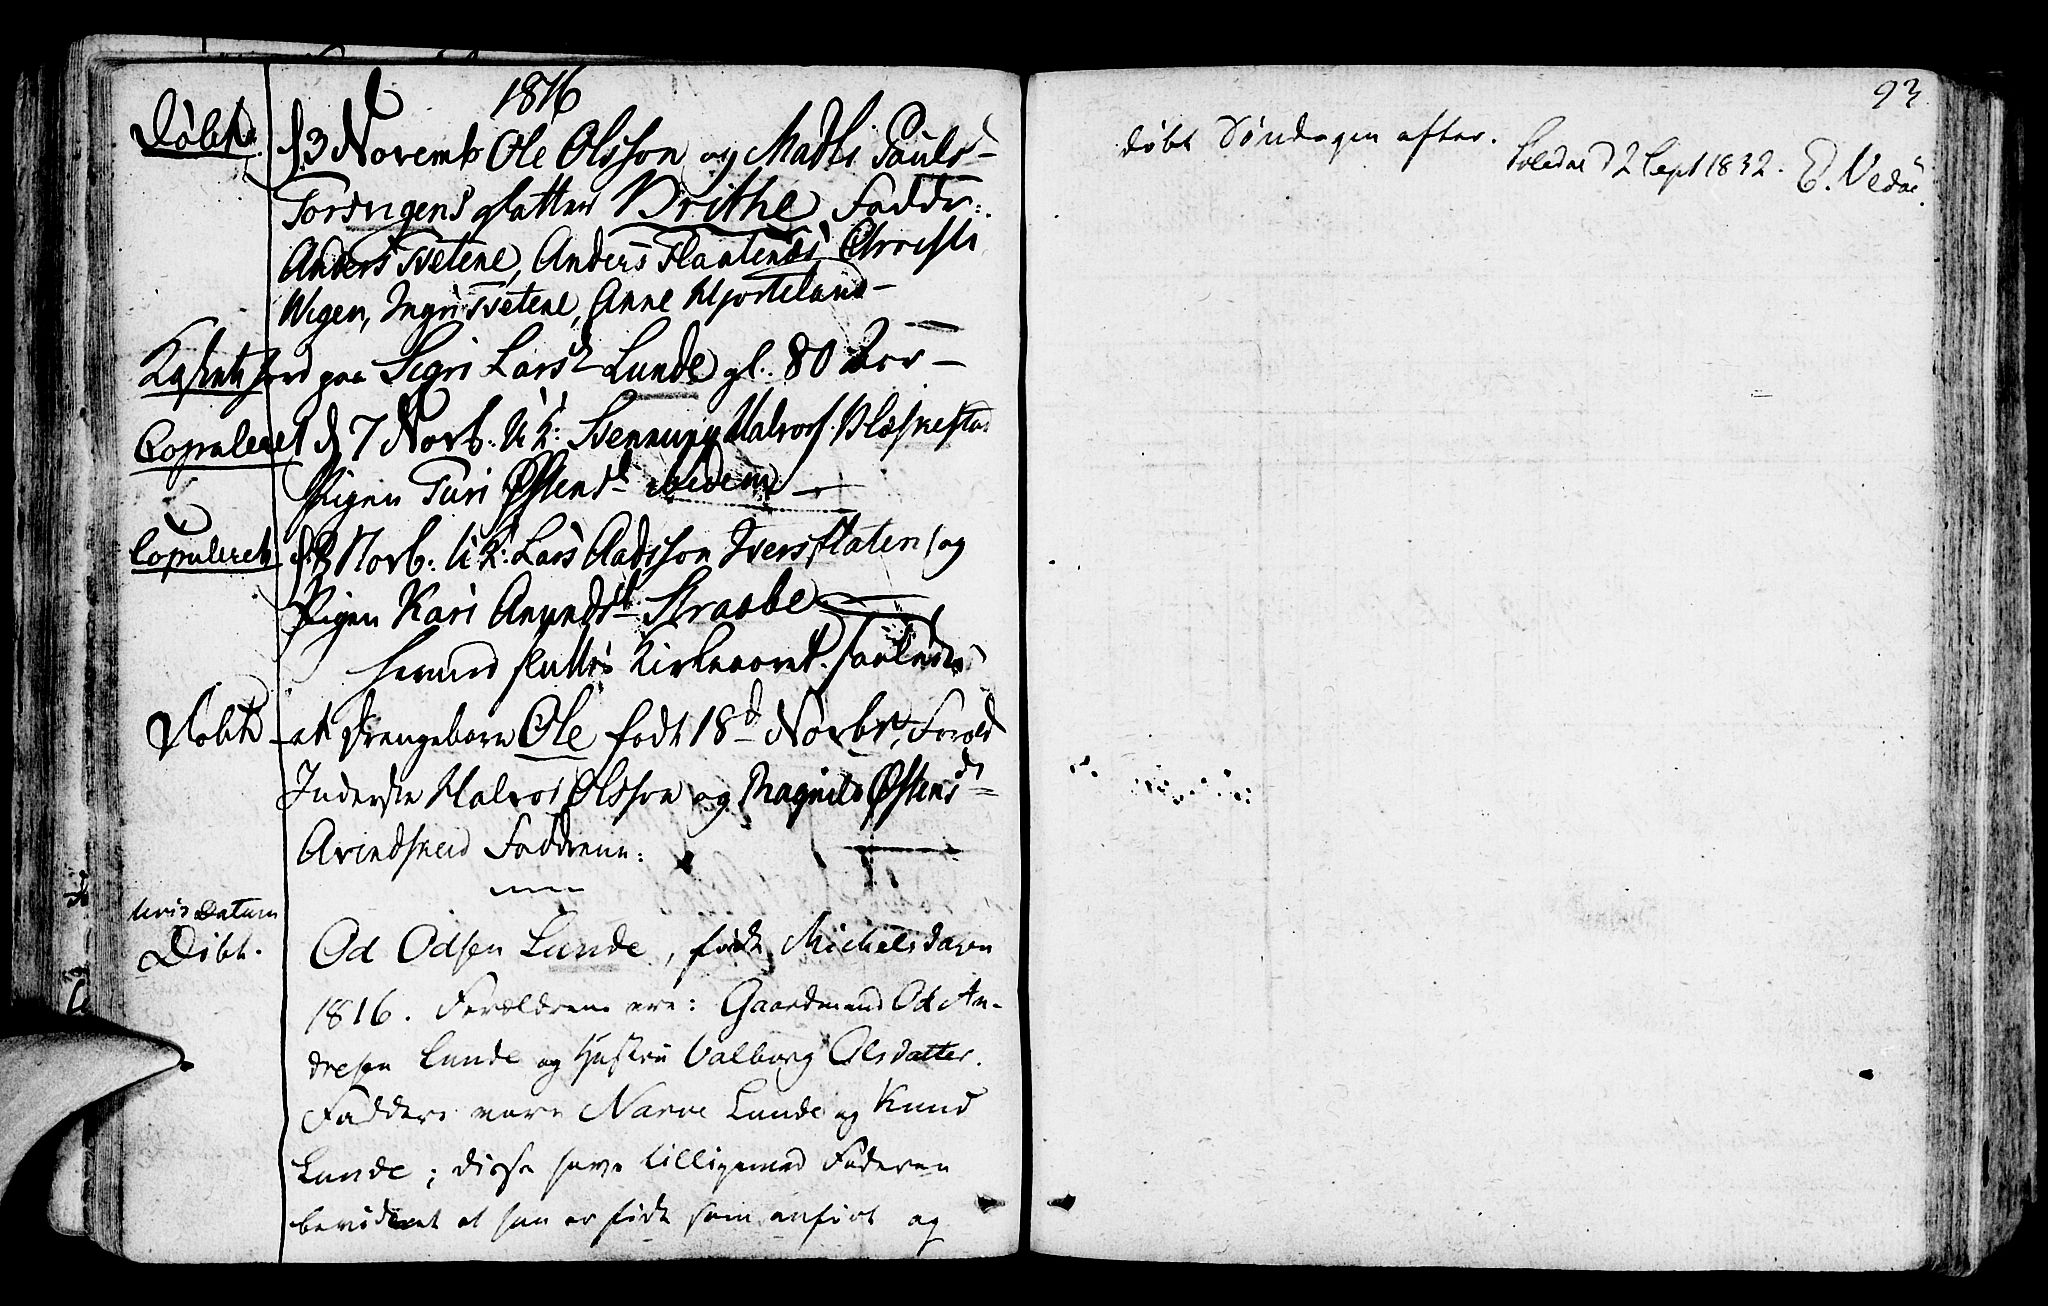 1816
Døbt d. 3 Novemb Ole Olsson og Madli Pouls-
Torsnigens Datter Brithe, Faddr:
Anders Tvetene, Anders Flaatenæs Christi
Wigen, Ingri Tvetene, Anne Hjorteland -
Kastet Jord paa Segri Larsd. Lunde gl. 80 Aar -
Copuleret d 7 Novb. U.K: Svennung Halvors.
Pigen Turi Østensd. ibidem -
Copuleret d. 8 Novb. U.K: Lars Aadsson Iversflaten og
Pigen Kari Amundsd. Straabe
Hermed sluttes Kirkeaaret saaledes
Døbt at Drengebarn Ole født 18d Novbr, Foræld
Inderste Halvor Olsson og Magnild Østensd
Arindskeid Fadderne:
hvis Datum
Døbt.
Od Odsen Lunde, født Michelsdagen
1816. Forældrene ere: Gaardmand Od An-
dresen Lunde og Hustru Valborg Olsdatter.
Faddere vare Narve Lunde og Knud
Lunde; disse have tilligemed Faderen
bevidnet at han er født som anført og
93
døbt Søndagen efter.
Soledal d 2 Sept 1832. E. Vedøe.